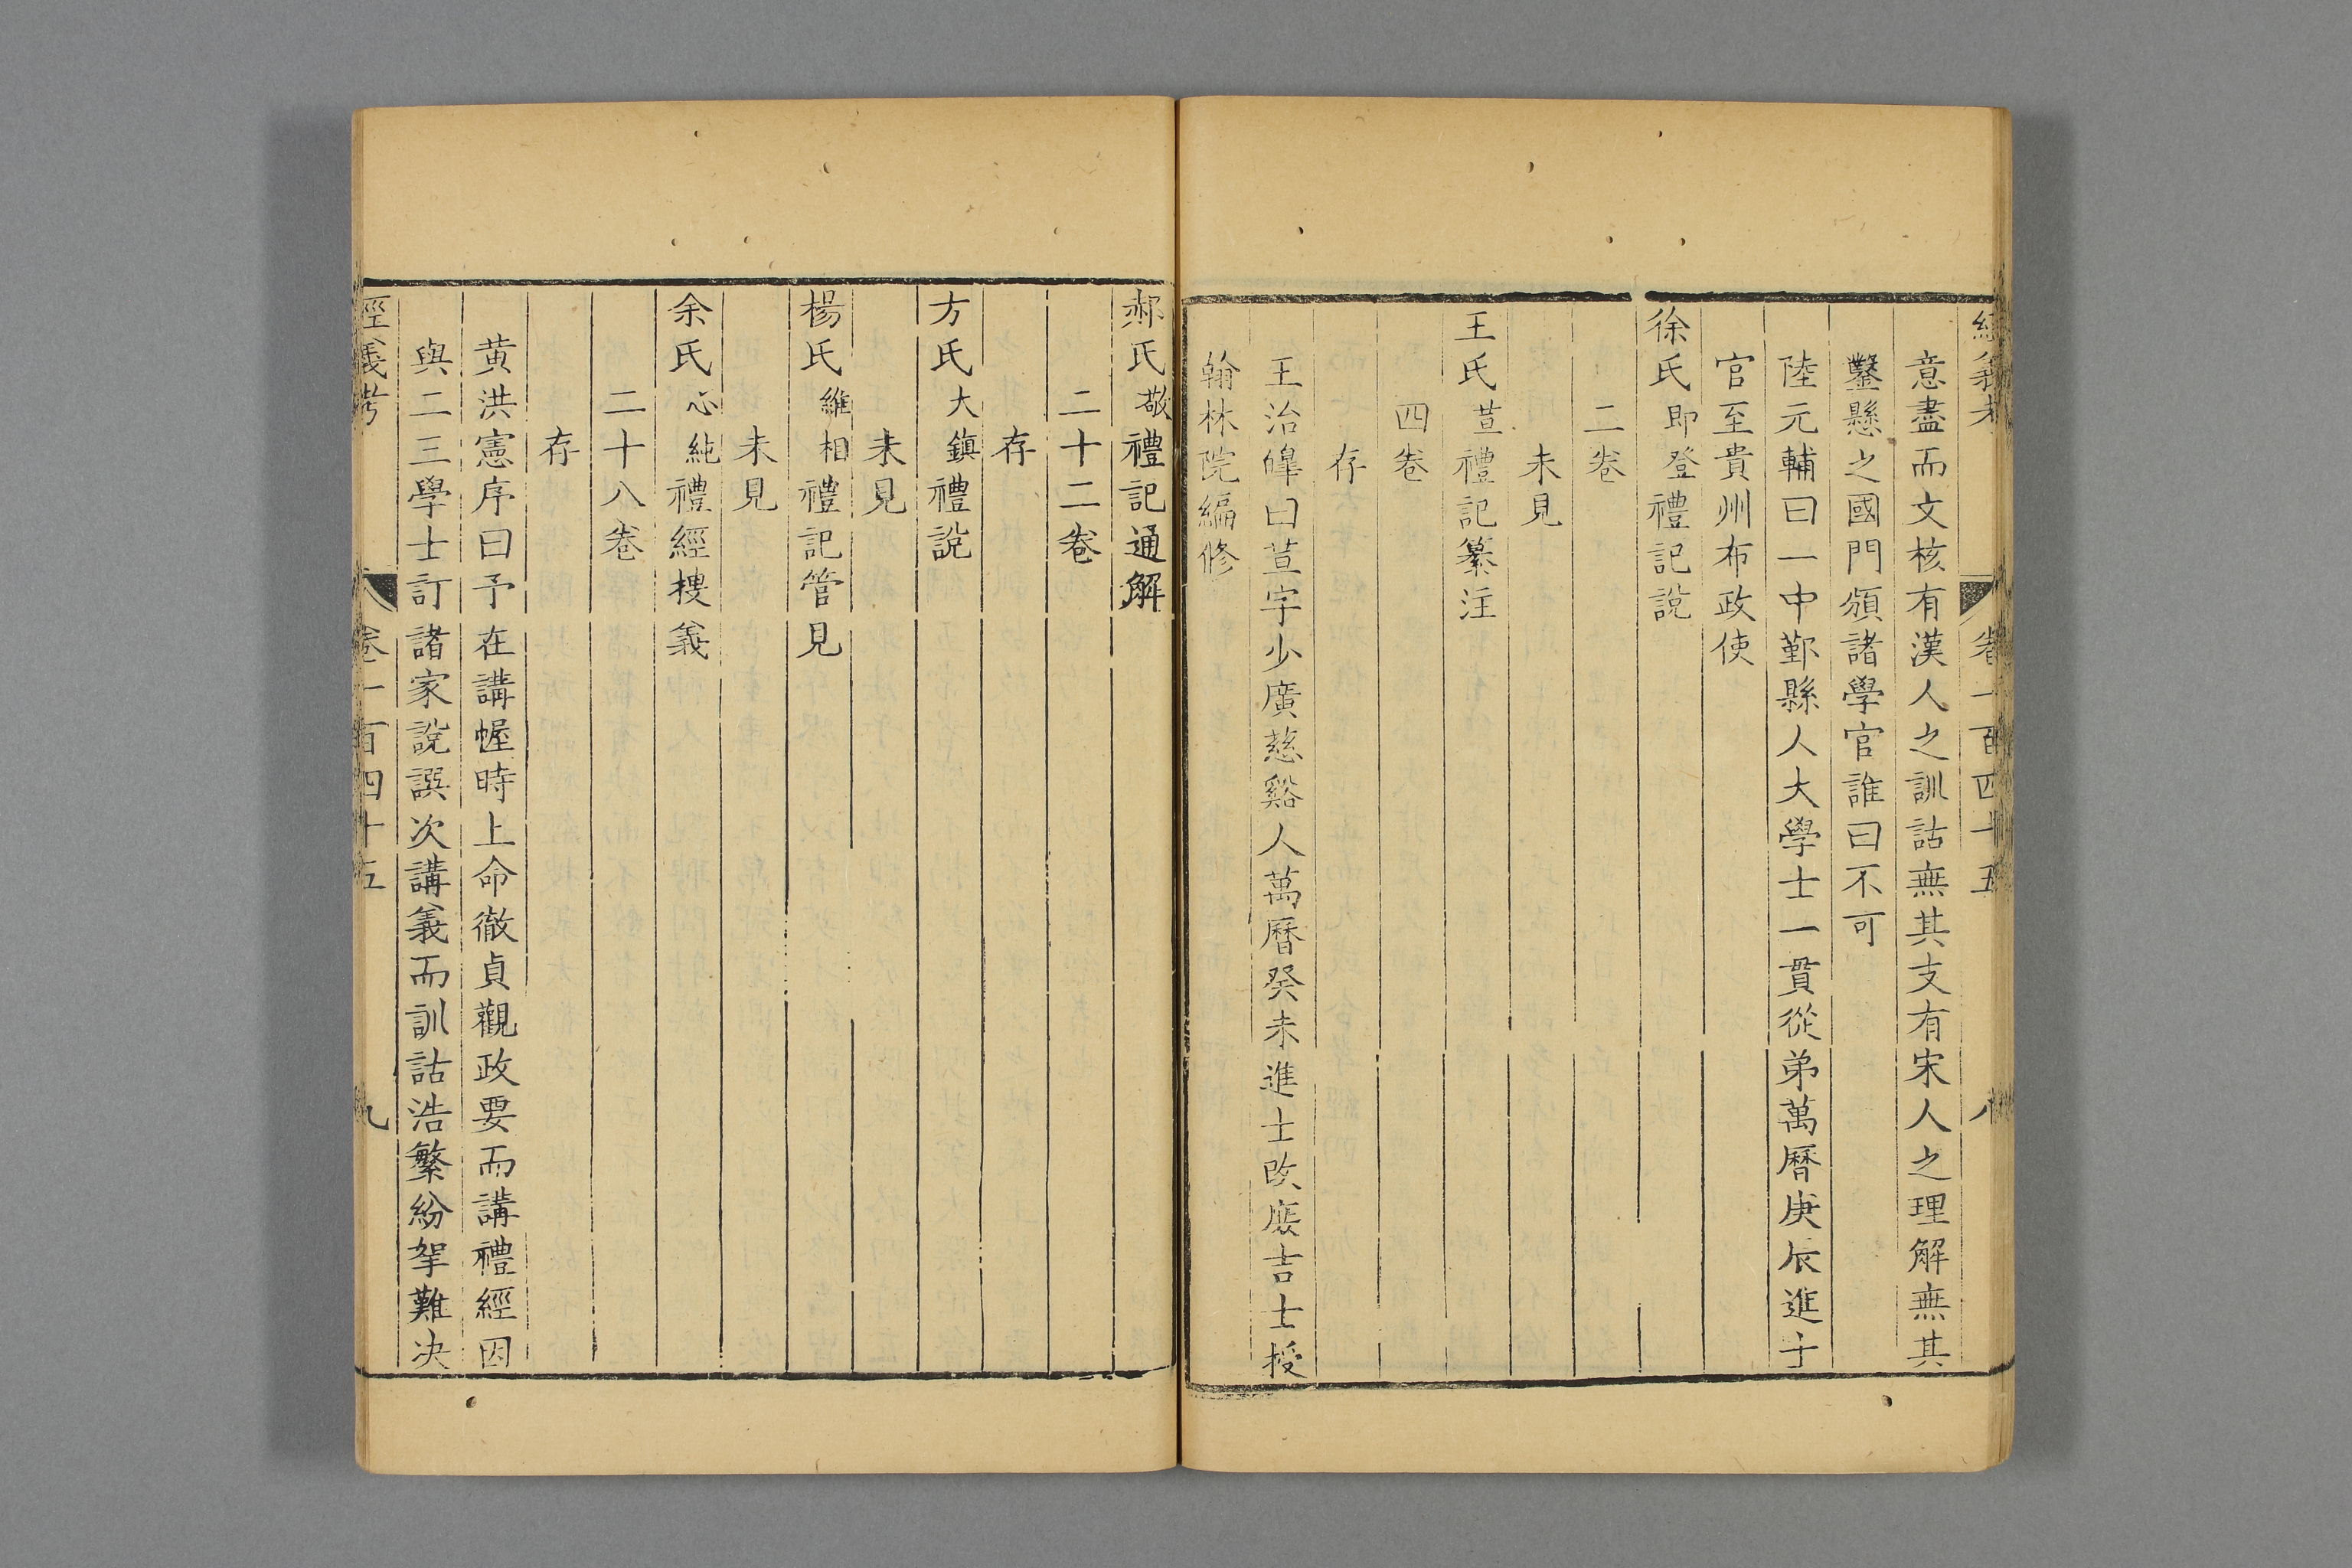 經義考 卷一百四十五 八
意盡而文核有漢人之訓詁無其支有宋人之理解無其
鑿懸之國門頒諸學官誰曰不可
陸元輔曰一中鄞縣人大學士一貫從弟萬曆庚辰進士
官至貴州布政使
徐氏即登禮記說
二卷
未見
王氏荁禮記纂注
四卷
存
王治皞曰荁字少廣慈谿人萬曆癸未進士改庶吉士授
翰林院編修
郝氏敬禮記通解
二十二卷
存
方氏大鎮禮說
未見
楊氏維相禮記管見
未見
余氏心純禮經摟義
二十八卷
存
黃洪憲序曰予在講幄時上命徹貞觀政要而講禮經因
與二三學士訂諸家說譔次講義而訓詁浩繁紛挐難決
經義考 卷一百四十五 九